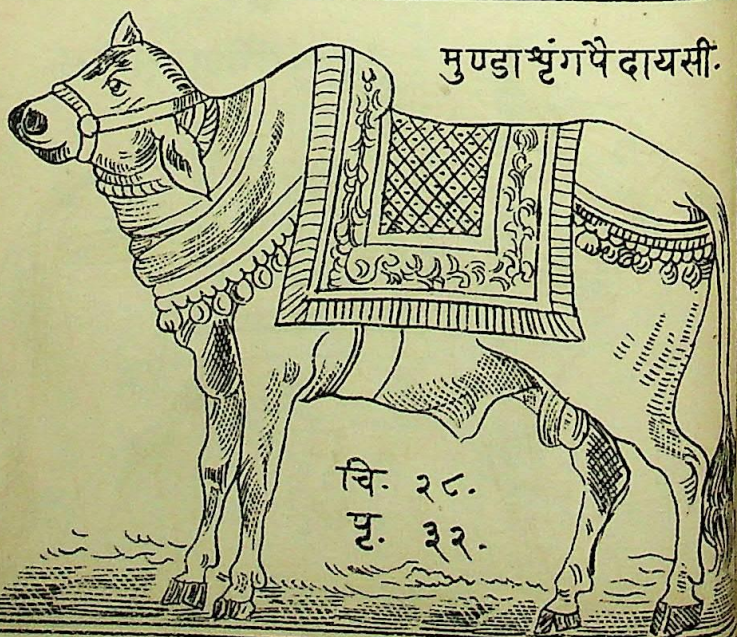 मुण्डा श्रृंग पैदायसी.
चि. २८.
पृ. ३२.